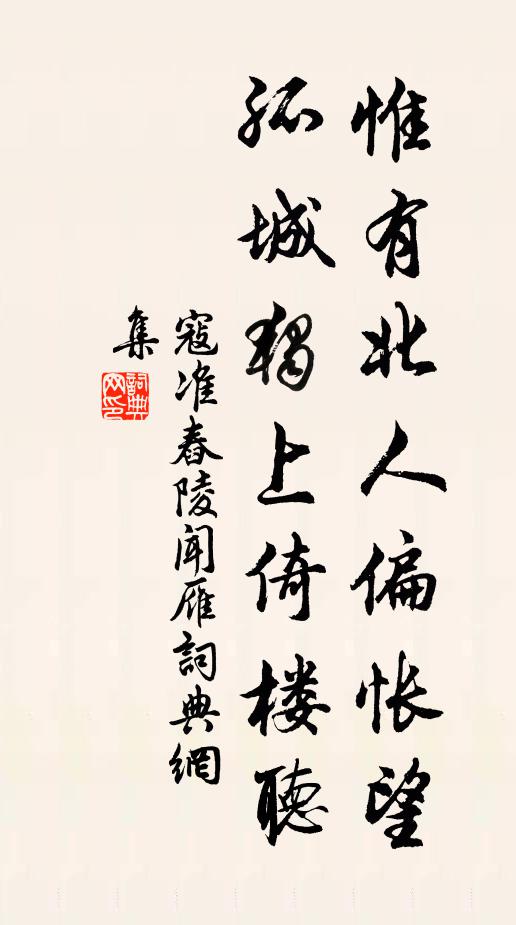 惟有北人偏怅望
孤城独上倚楼聽
寇准舂陵闻雁詞典網
集
詞典网印